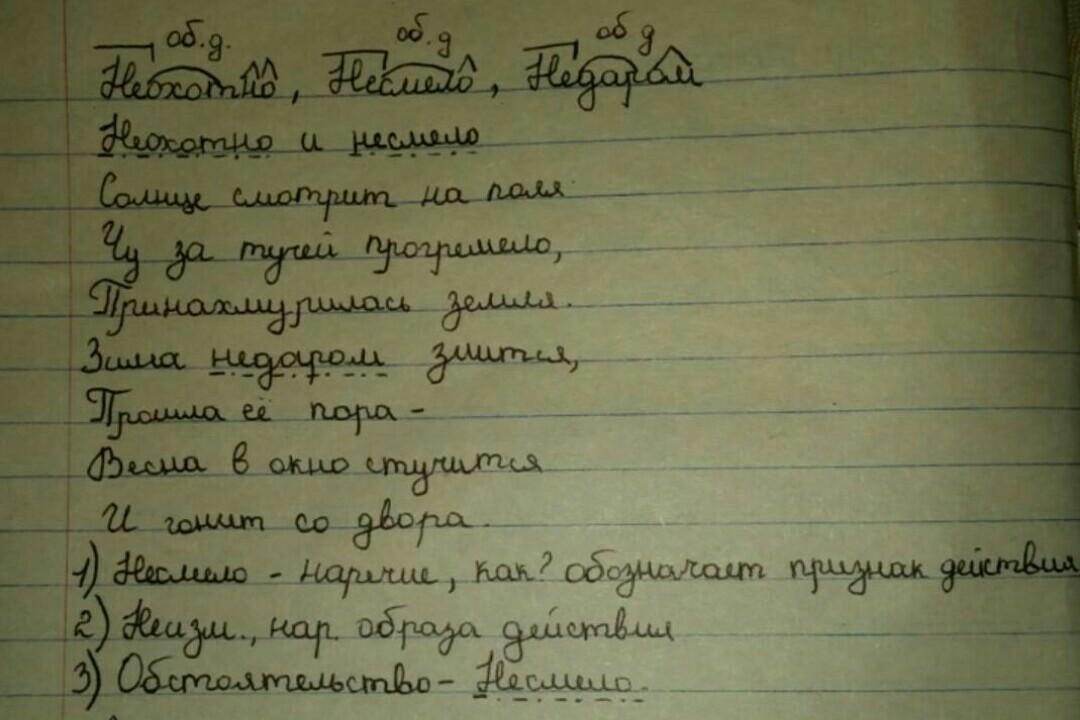 об.д. об.д об д
Неохотно, Несмело, Недаром
Неохотно и несмело
Солнце смотрит на поля
Чу за тучей прогремело,
Принахмурилась земля.
Зима недаром злится,
Прошла её пора -
Весна в окно стучится
И гонит со двора.
1) Несмело - наречие, как? обозначает признак действия
2) Неизм., нар. образа действия
3) Обстоятельство - Несмело.